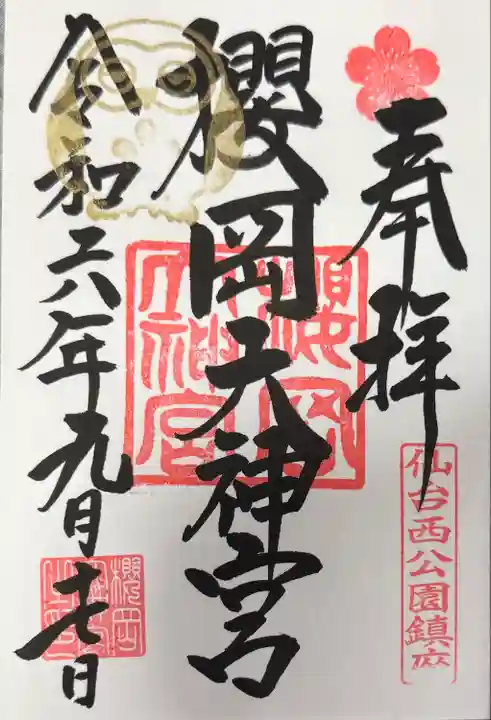 奉拝
仙台西公園鎮座
櫻岡天神宮
櫻岡天神宮
令和六年九月十七日